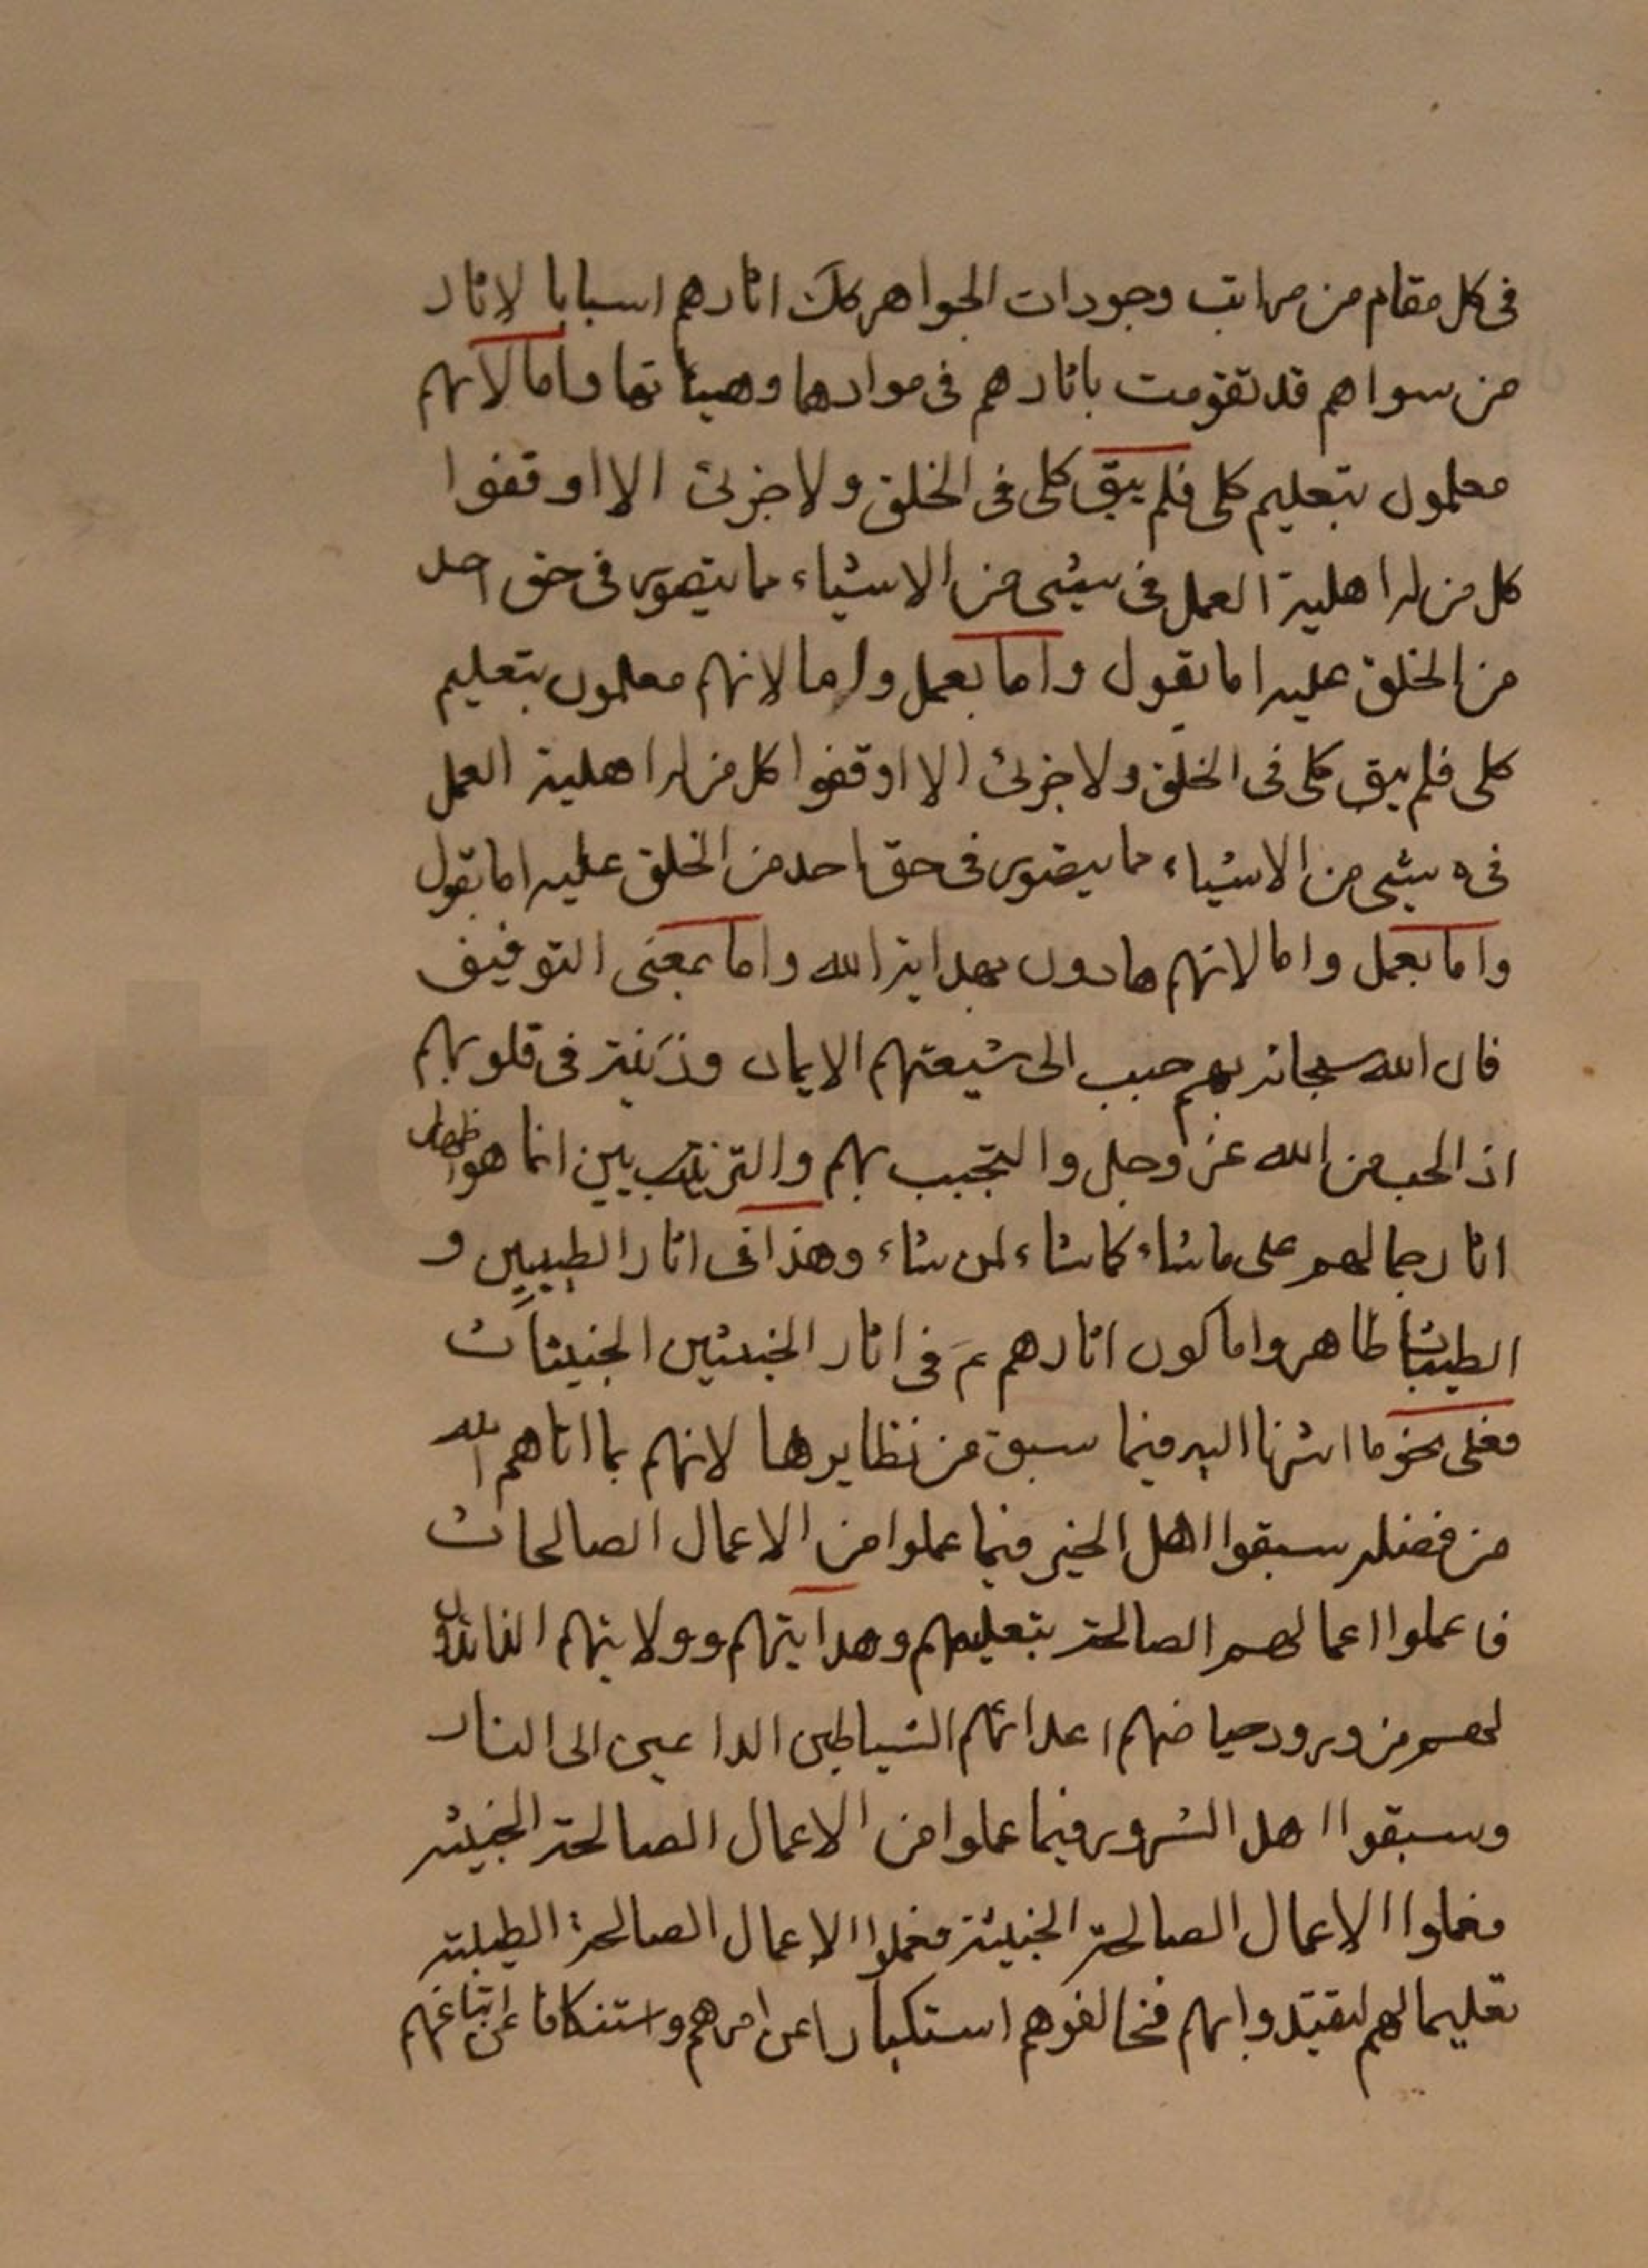 فى كل مقام من مراتب وجودات الجواهر كك اثارهم اسبابا لاثار
من سواهم قد تقومت باثارهم فى موادها وهيئاتها واما لانهم
معلمون بتعليم كلى فلم يبق كلى فى الخلق ولا جزئ الا اوقفوا
كل من له اهلية العمل فى شيئى من الاشياء مما يتصور فى حق احد
من الخلق عليه اما بقول واما بعمل واما لانهم معلمون بتعليم
كلى فلم يبق كلى فى الخلق ولا جزئ الا اوقفوا كل من له اهلية العمل
فى ه شيئى من الاشياء مما يتصور فى حق احد من الخلق عليه اما بقول
واما بعمل واما لانهم هادون بهداية الله واما بمعنى التوفيق
فان الله سبحانه بهم حبب الى شيعتهم الايمان وزينه فى قلوبهم
اذ الحب من الله عز وجل والتحبب بهم والتزيين انما هو اظهار
اثار جمالهم على ما شاء كما شاء لمن شاء وهذا فى اثار الطيبين و
الطيبات ظاهر واما كون اثارهم ع فى اثار الخبيثين الخبيثات
فعلى نحو ما اشرنا اليه فيما سبق من نظايرها لانهم بما اتاهم الله
من فضله سبقوا اهل الخير فيما عملوا من الاعمال الصالحات
فاعملوا اعمالهم الصالحة بتعليمهم وهدايتهم وولايتهم الذائدة
لهم من ورود حياضهم اعدائهم الشياطين الداعين الى النار
وسبقوا اهل الشرور فيما عملوا من الاعمال الصالحة الخبيثه
فعملوا الاعمال الصالحة الخبيثة فعملوا الاعمال الصالحة الطيبة
تعليما لهم ليقتدوا بهم فخالفوهم استكبارا عن امرهم واستنكافا عن اتباعهم